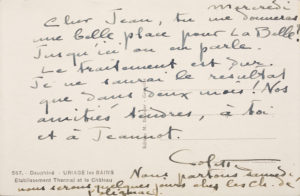 Mercredi
Cher Jean, tu me donneras
une belle place pour La Belle!
Jusqu'ici on en parle.
Le traitement est dur.
Je ne saurai le resultat
que dans deux mois! Nos
amitiés tendres, à toi
et à Jeannot.
Colette
Nous partons samedi
nous serons quelques jours chez les
567. - Dauphiné - URIAGE les BAINS
Etablissement Thermal et le Château